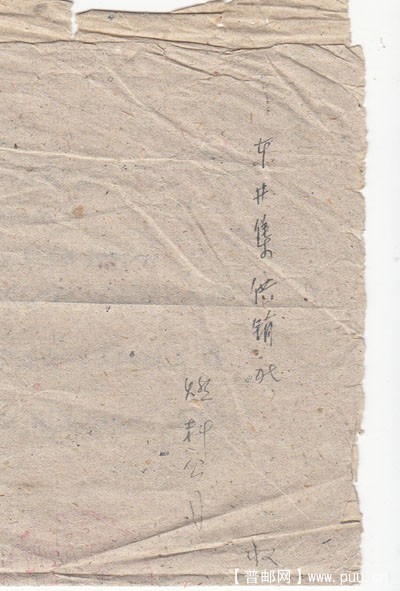 东井集供销社 收
燃料公司
【普邮网】www.puu.cn